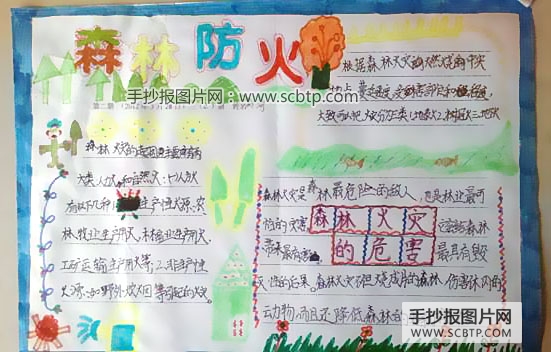 森林防火
手抄报图片网：www.scbtp.com
根据森林火灾的燃烧的中央
地点,蔓延速度,受到害部位和
大致可以把火灾分为三类:1.地表火,2.树冠火3.地下火
森林火灾的起因主要有两
大类,人为火和自然火:1.人为火
有以下几种:1.生产性火源:农
林牧业生产用火,林业生产用火,
工矿运输生产用火等,2.非生产性
火源:如野外吸烟等引起的火灾
森林火灾是森林最危险的敌人,也是林业最可
怕的灾害
森林火灾
的危害
它会给森林
带来最有害
最具有毁
灭性的后果。森林火灾不但烧成片的森林,伤害林内的
动物,而且还降低森林的
手抄报图片网
WWW.SCBTP.COM